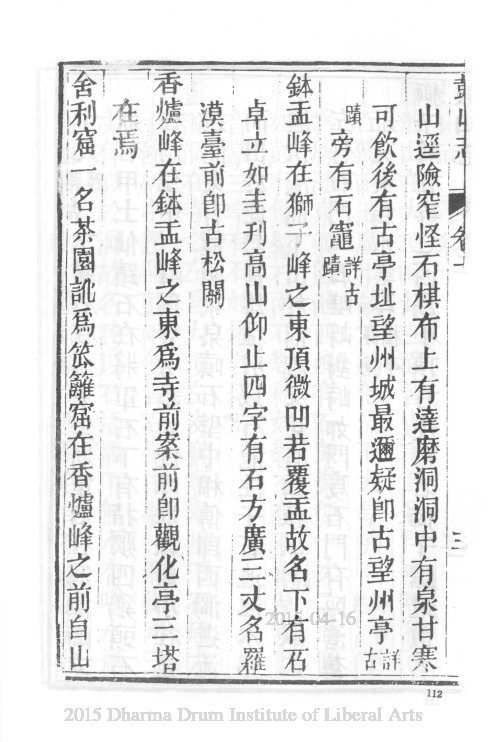 山逕險窄怪石棋布上有達磨洞洞中有泉甘寒
可飲後有古亭址望州城最邇疑卽古望州亭詳古
蹟旁有石竈詳古蹟
鉢盂峰在獅子峰之東頂微凹若覆盂故名下有石
卓立如圭刋高山仰止四字有石方廣三丈名羅
漠臺前卽古松關
香爐峰在鉢盂峰之東為寺前案前卽觀化亭三塔
在焉
舍利窟一名茶園訛為笊籬窟在香爐峰之前自山
三
2014-04-16
112
2015 Dharma Drum Institute of Liberal Arts